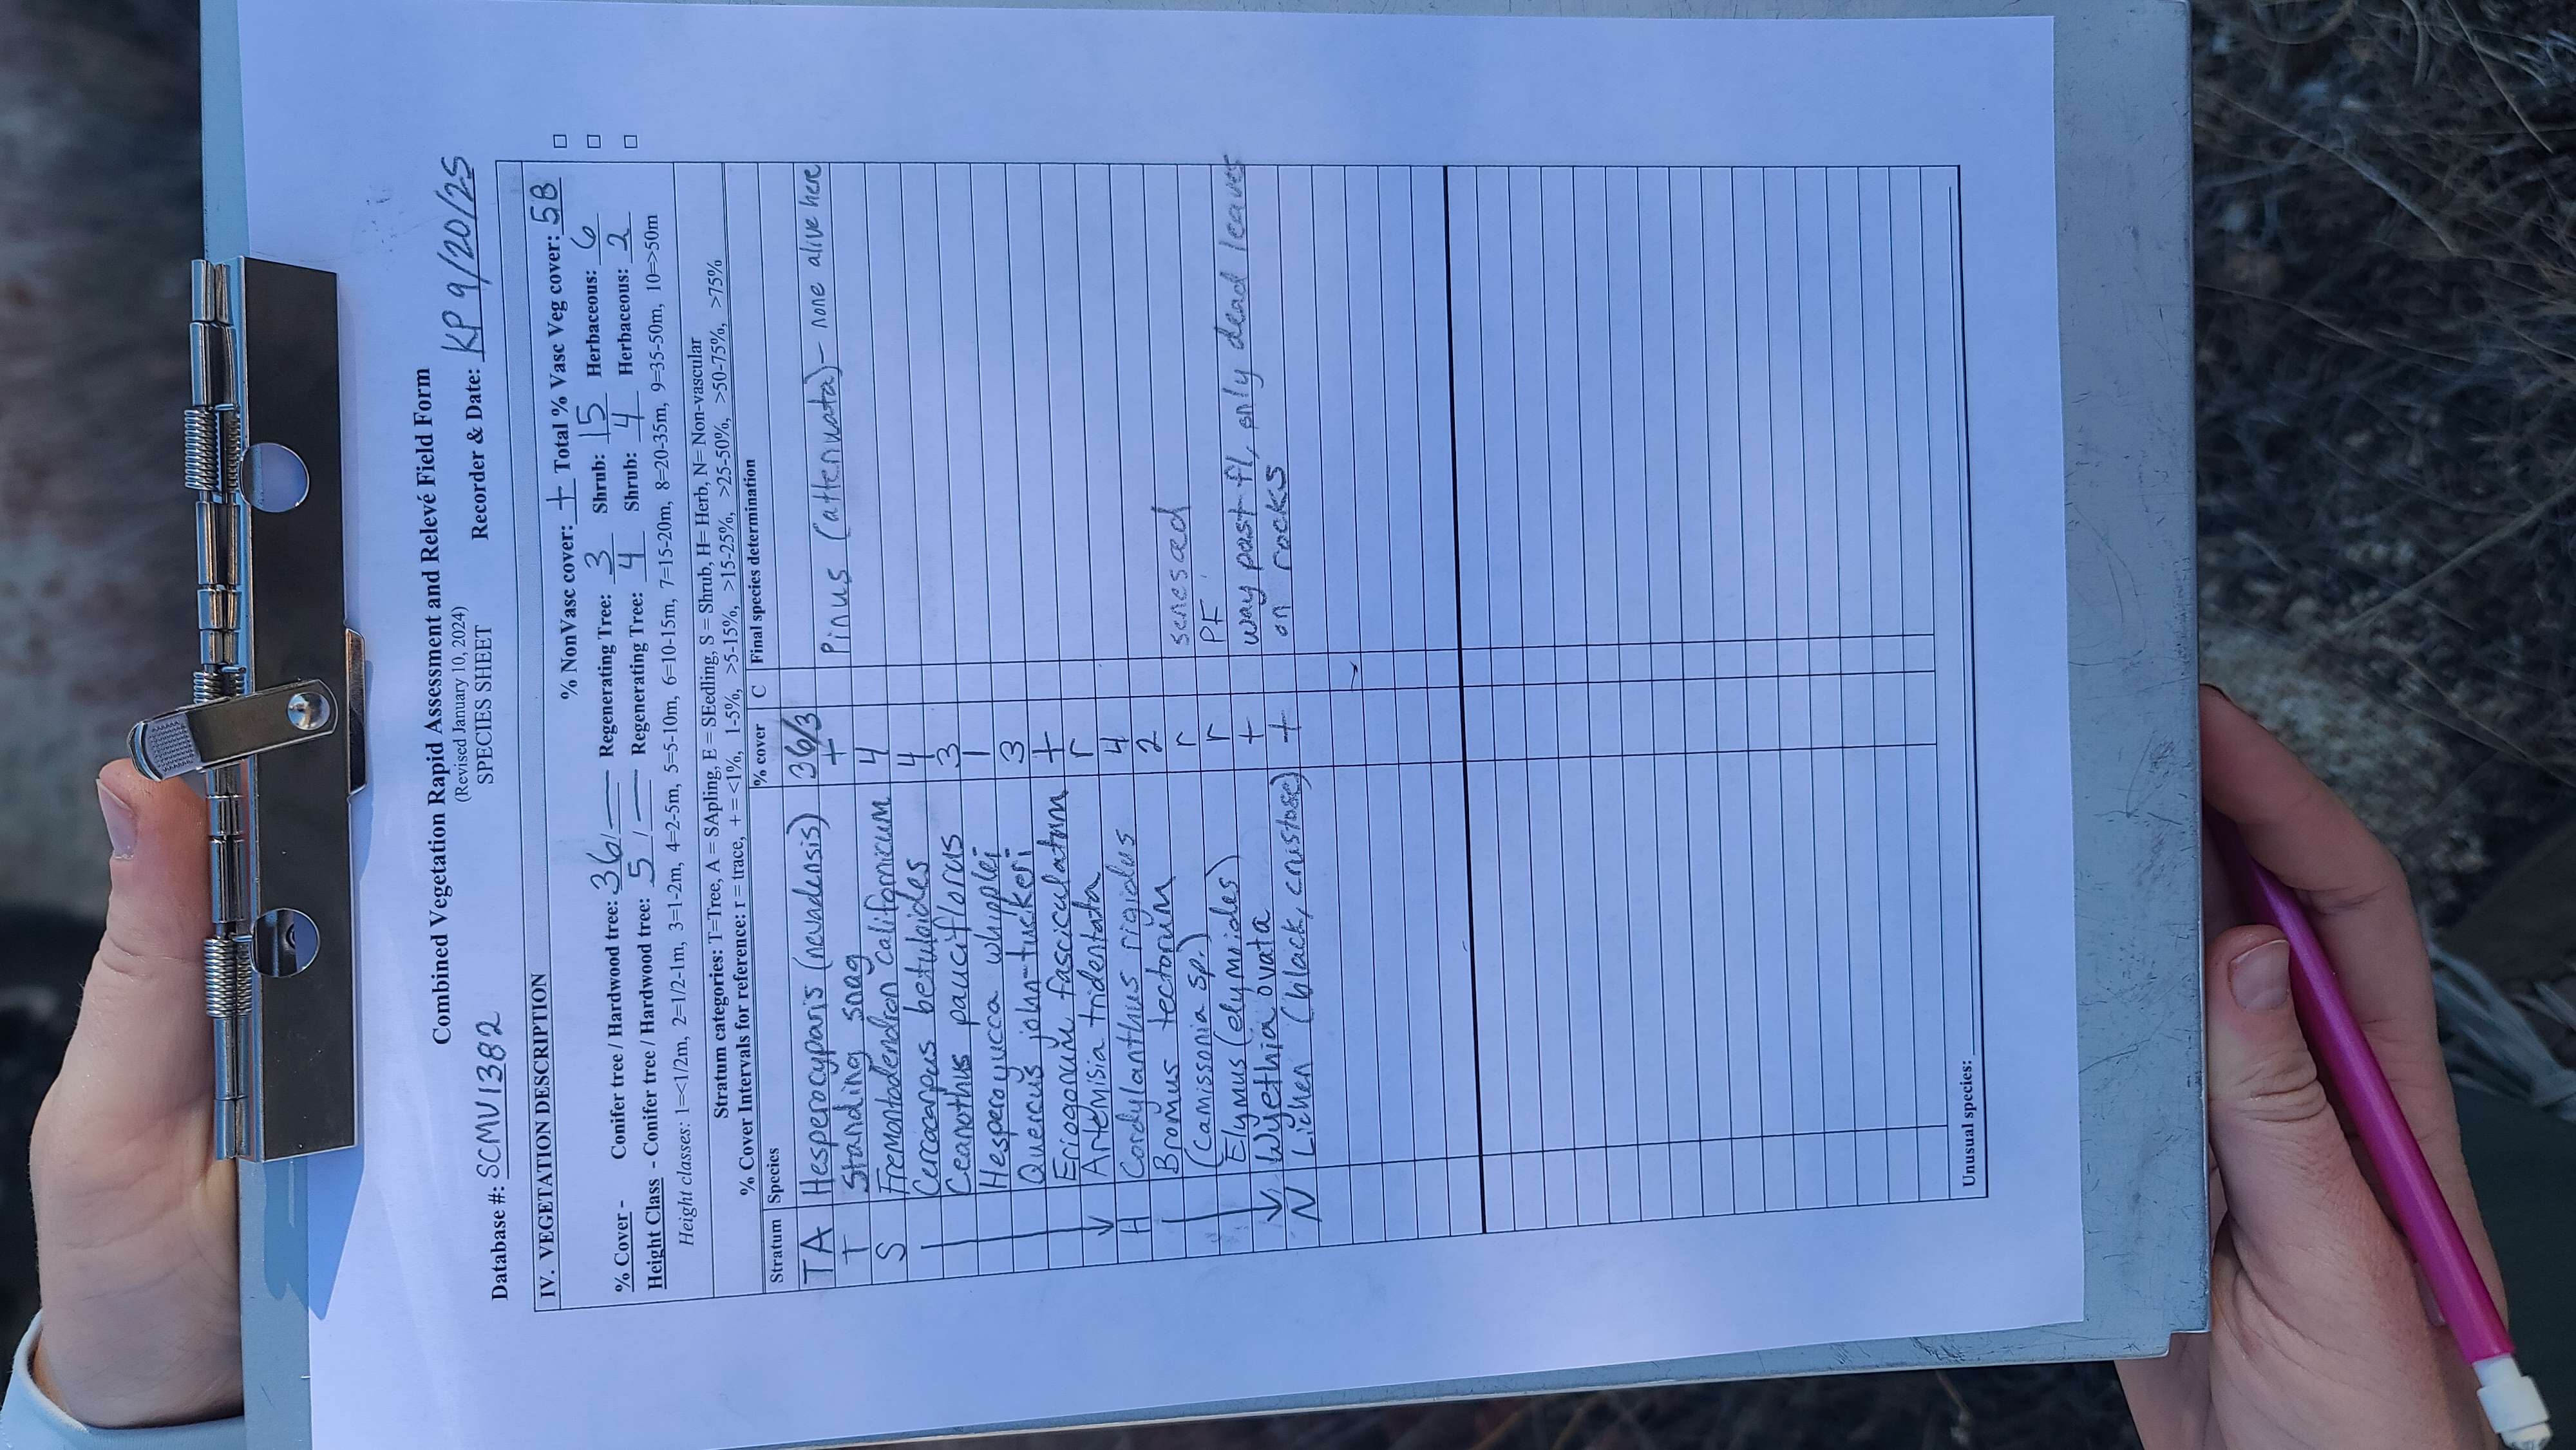 Combined Vegetation Rapid Assessment and Relevé Field Form
(Revised January 10, 2024)
Database #: SCMV1382 SPECIES SHEET Recorder & Date: KP 9/20/25
IV. VEGETATION DESCRIPTION
% NonVasc cover: + Total % Vasc Veg cover: 58 □
% Cover - Conifer tree / Hardwood tree: 36/— Regenerating Tree: 3 Shrub: 15 Herbaceous: 6 □
Height Class - Conifer tree / Hardwood tree: 5/— Regenerating Tree: 4 Shrub: 4 Herbaceous: 2 □
Height classes: 1=<1/2m, 2=1/2-1m, 3=1-2m, 4=2-5m, 5=5-10m, 6=10-15m, 7=15-20m, 8=20-35m, 9=35-50m, 10=>50m
Stratum categories: T=Tree, A = SApling, E = SEedling, S = Shrub, H= Herb, N= Non-vascular
% Cover Intervals for reference: r = trace, + = <1%, 1-5%, >5-15%, >15-25%, >25-50%, >50-75%, >75%
Stratum Species % cover C Final species determination
TA Hesperocyparis (nevadensis) 36/3
T Standing snag + Pinus (attenuata) – none alive here
S Fremontodendron californicum 4
Cercocarpus betuloides 4
Ceanothus pauciflorus 3
Hesperoyucca whipplei 1
Quercus john-tuckeri 3
Eriogonum fasciculatum +
↓ Artemisia tridentata r
H Cordylanthus rigidus 4
Bromus tectorum 2
(Camissonia sp.) r senesced
Elymus (elymoides) r PF
↓ Wyethia ovata + way past fl, only dead leaves
N Lichen (black, crustose) + on rocks
Unusual species: